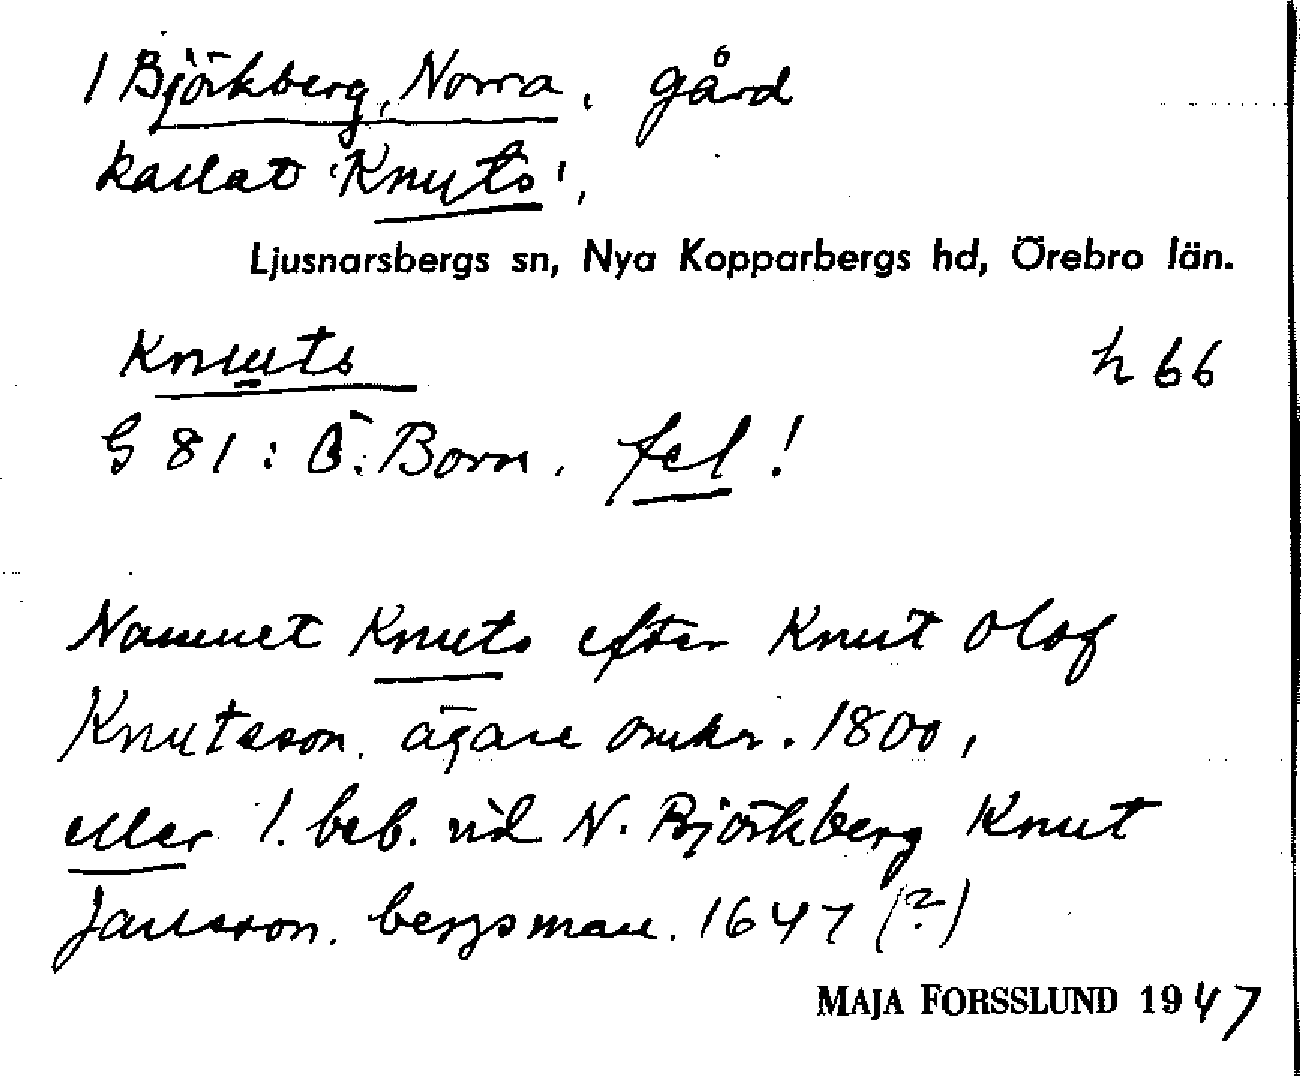 1 Björkberg, Norra, gård
kallat 'Knuts',
Ljusnarsbergs sn, Nya Kopparbergs hd, Örebro län.
Knuts h 66
G 81 : Ö. Born. fel!
Namnet Knuts efter Knut Olof
Knutsson. ägare omkr. 1800,
eller 1. beb. vid N. Björkberg Knut
Jansson. bergsman. 1647 (?)
MAJA FORSSLUND 1947